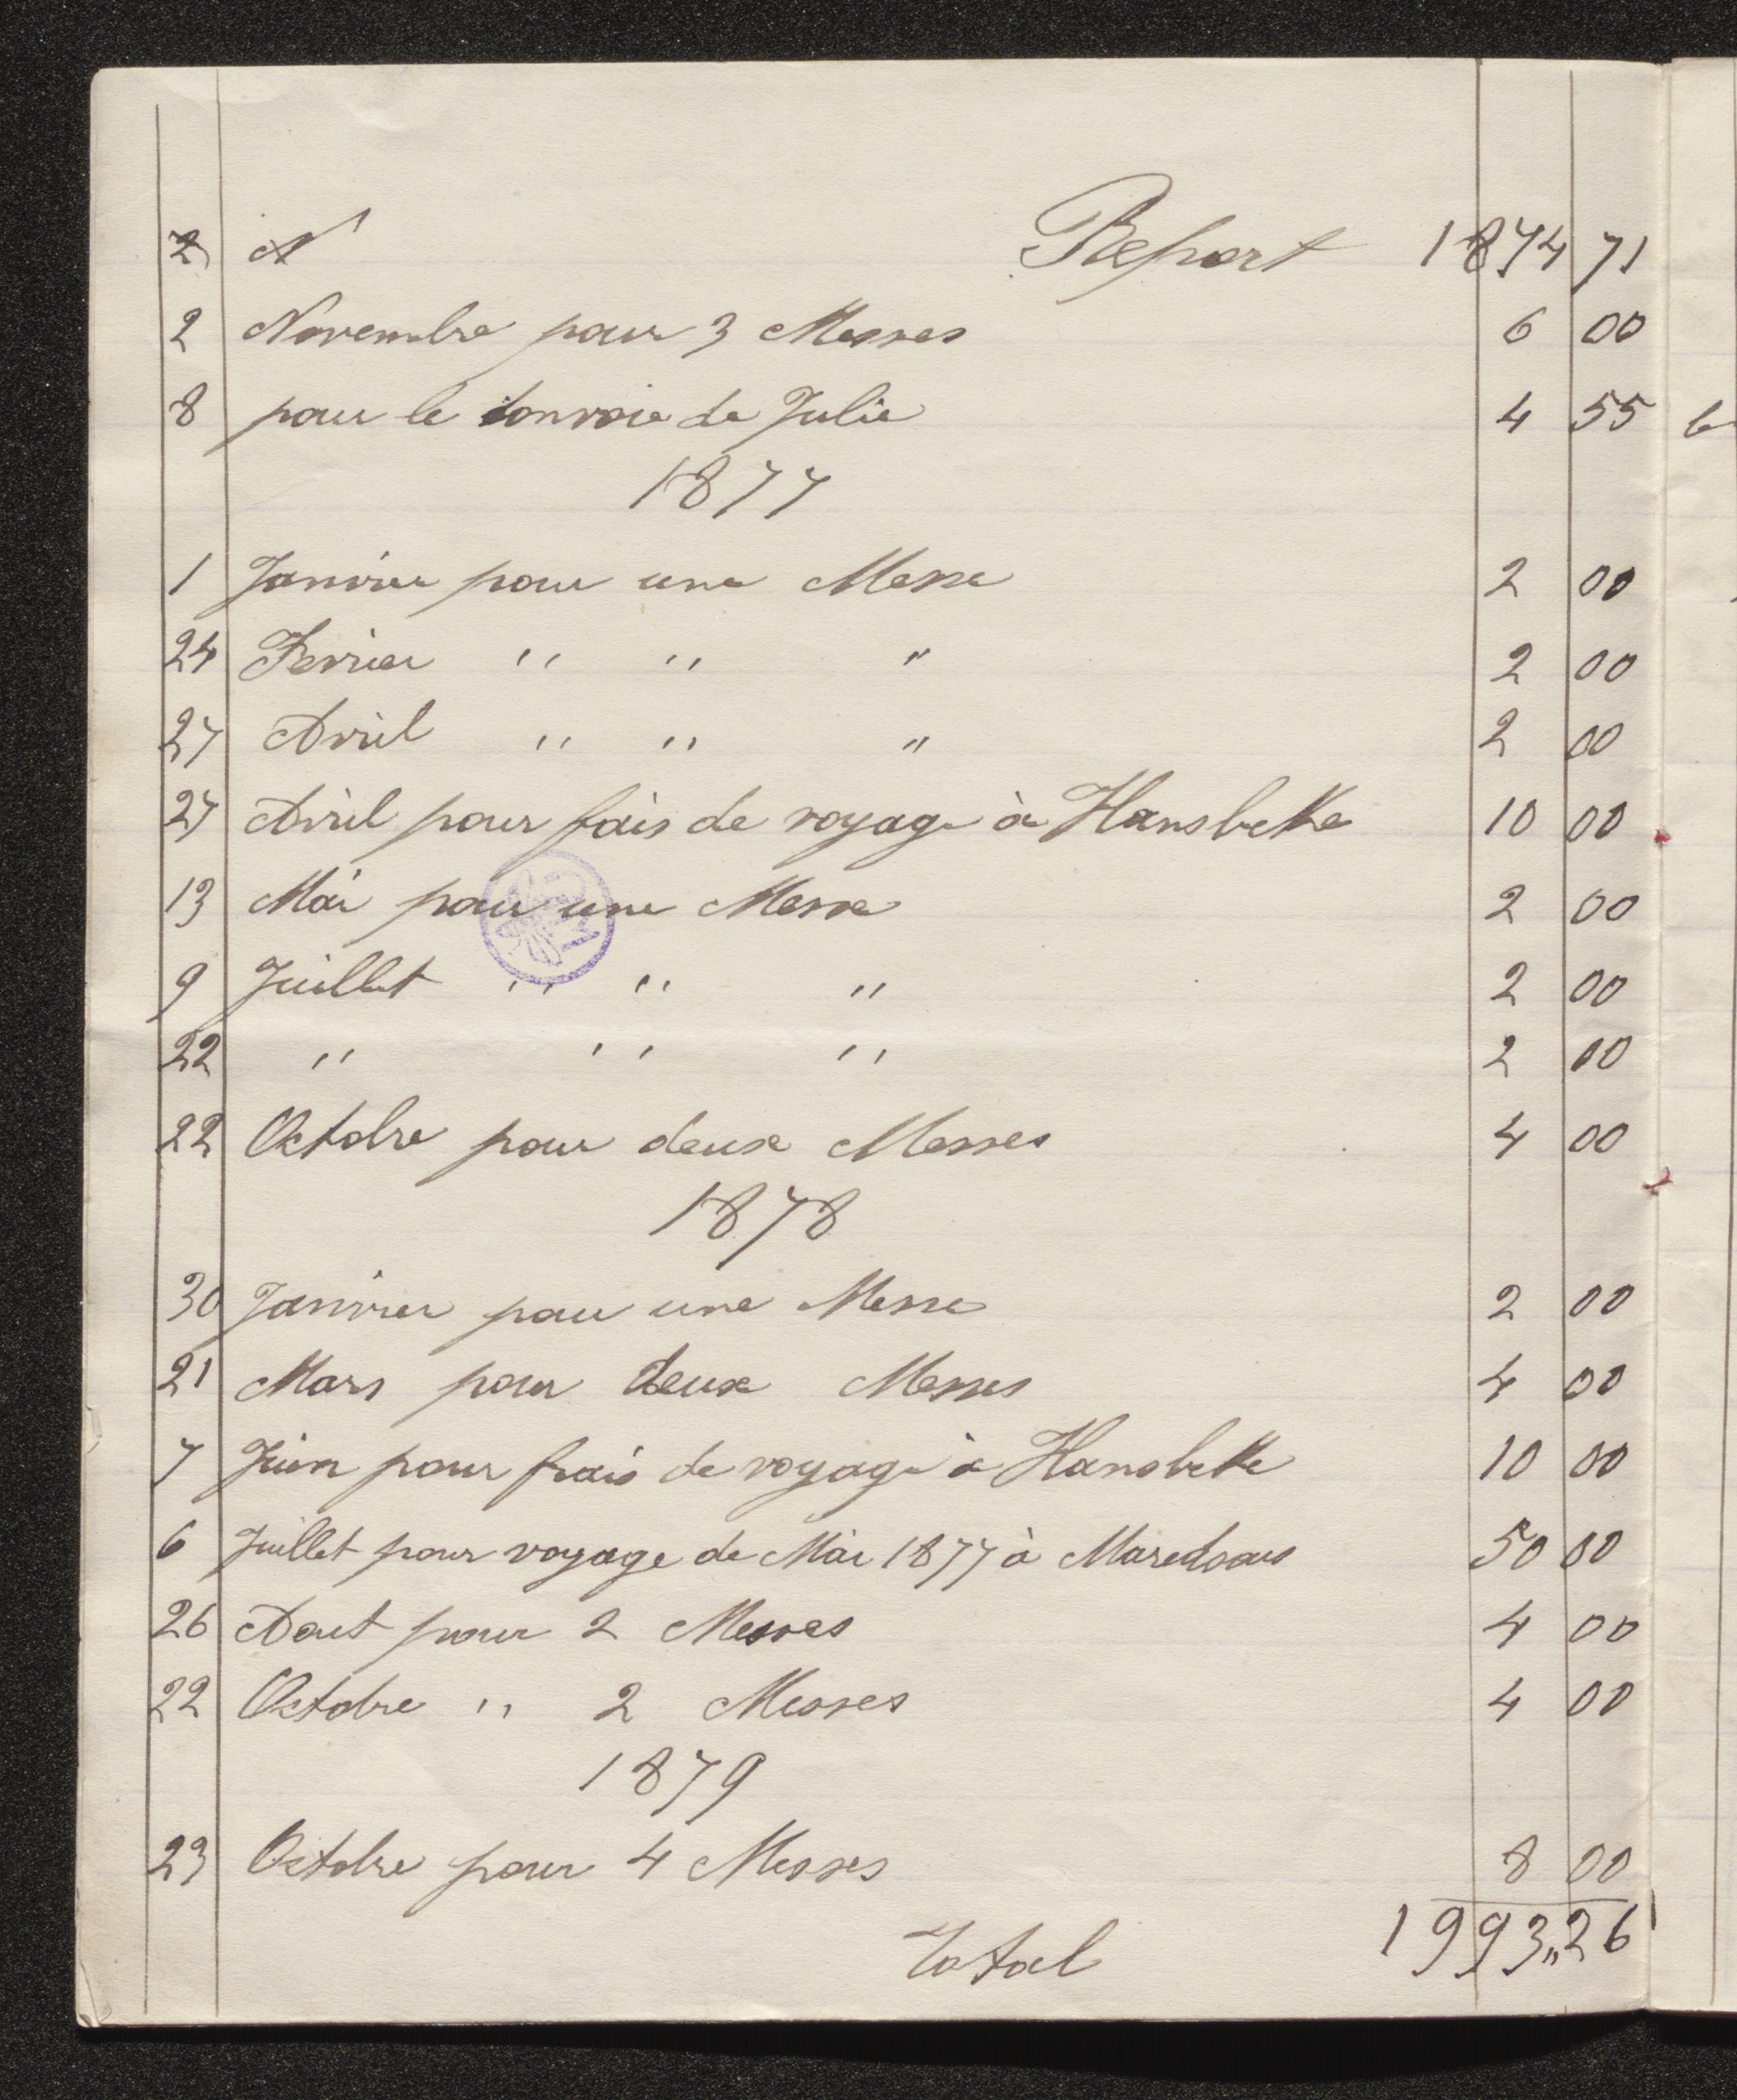 2 N Report 1874 71
2 Novembre pour 3 Messes 6 00
8 pour le convoie de Julie 4 55
1877
1 Janvier pour une Messe 2 00
24 Fevrier " " " 2 00
27 Avril " " " 2 00
27 Avril pour fais de voyage à Hansbeke 10 00
13 Mai pour une Messe 2 00
9 Juillet " " " 2 00
22 " " " 2 00
22 Octobre pour deux Messes 4 00
1878
30 Janvier pour une Messe 2 00
21 Mars pour deux Messes 4 00
7 Juin pour frais de voyage à Hansbeke 10 00
6 Juillet pour voyage de Mai 1877 à Maredsous 50 00
26 Aout pour 2 Messes 4 00
22 Octobre " 2 Messes 4 00
1879
23 Octobre pour 4 Messes 8 00
Total 1993,,26